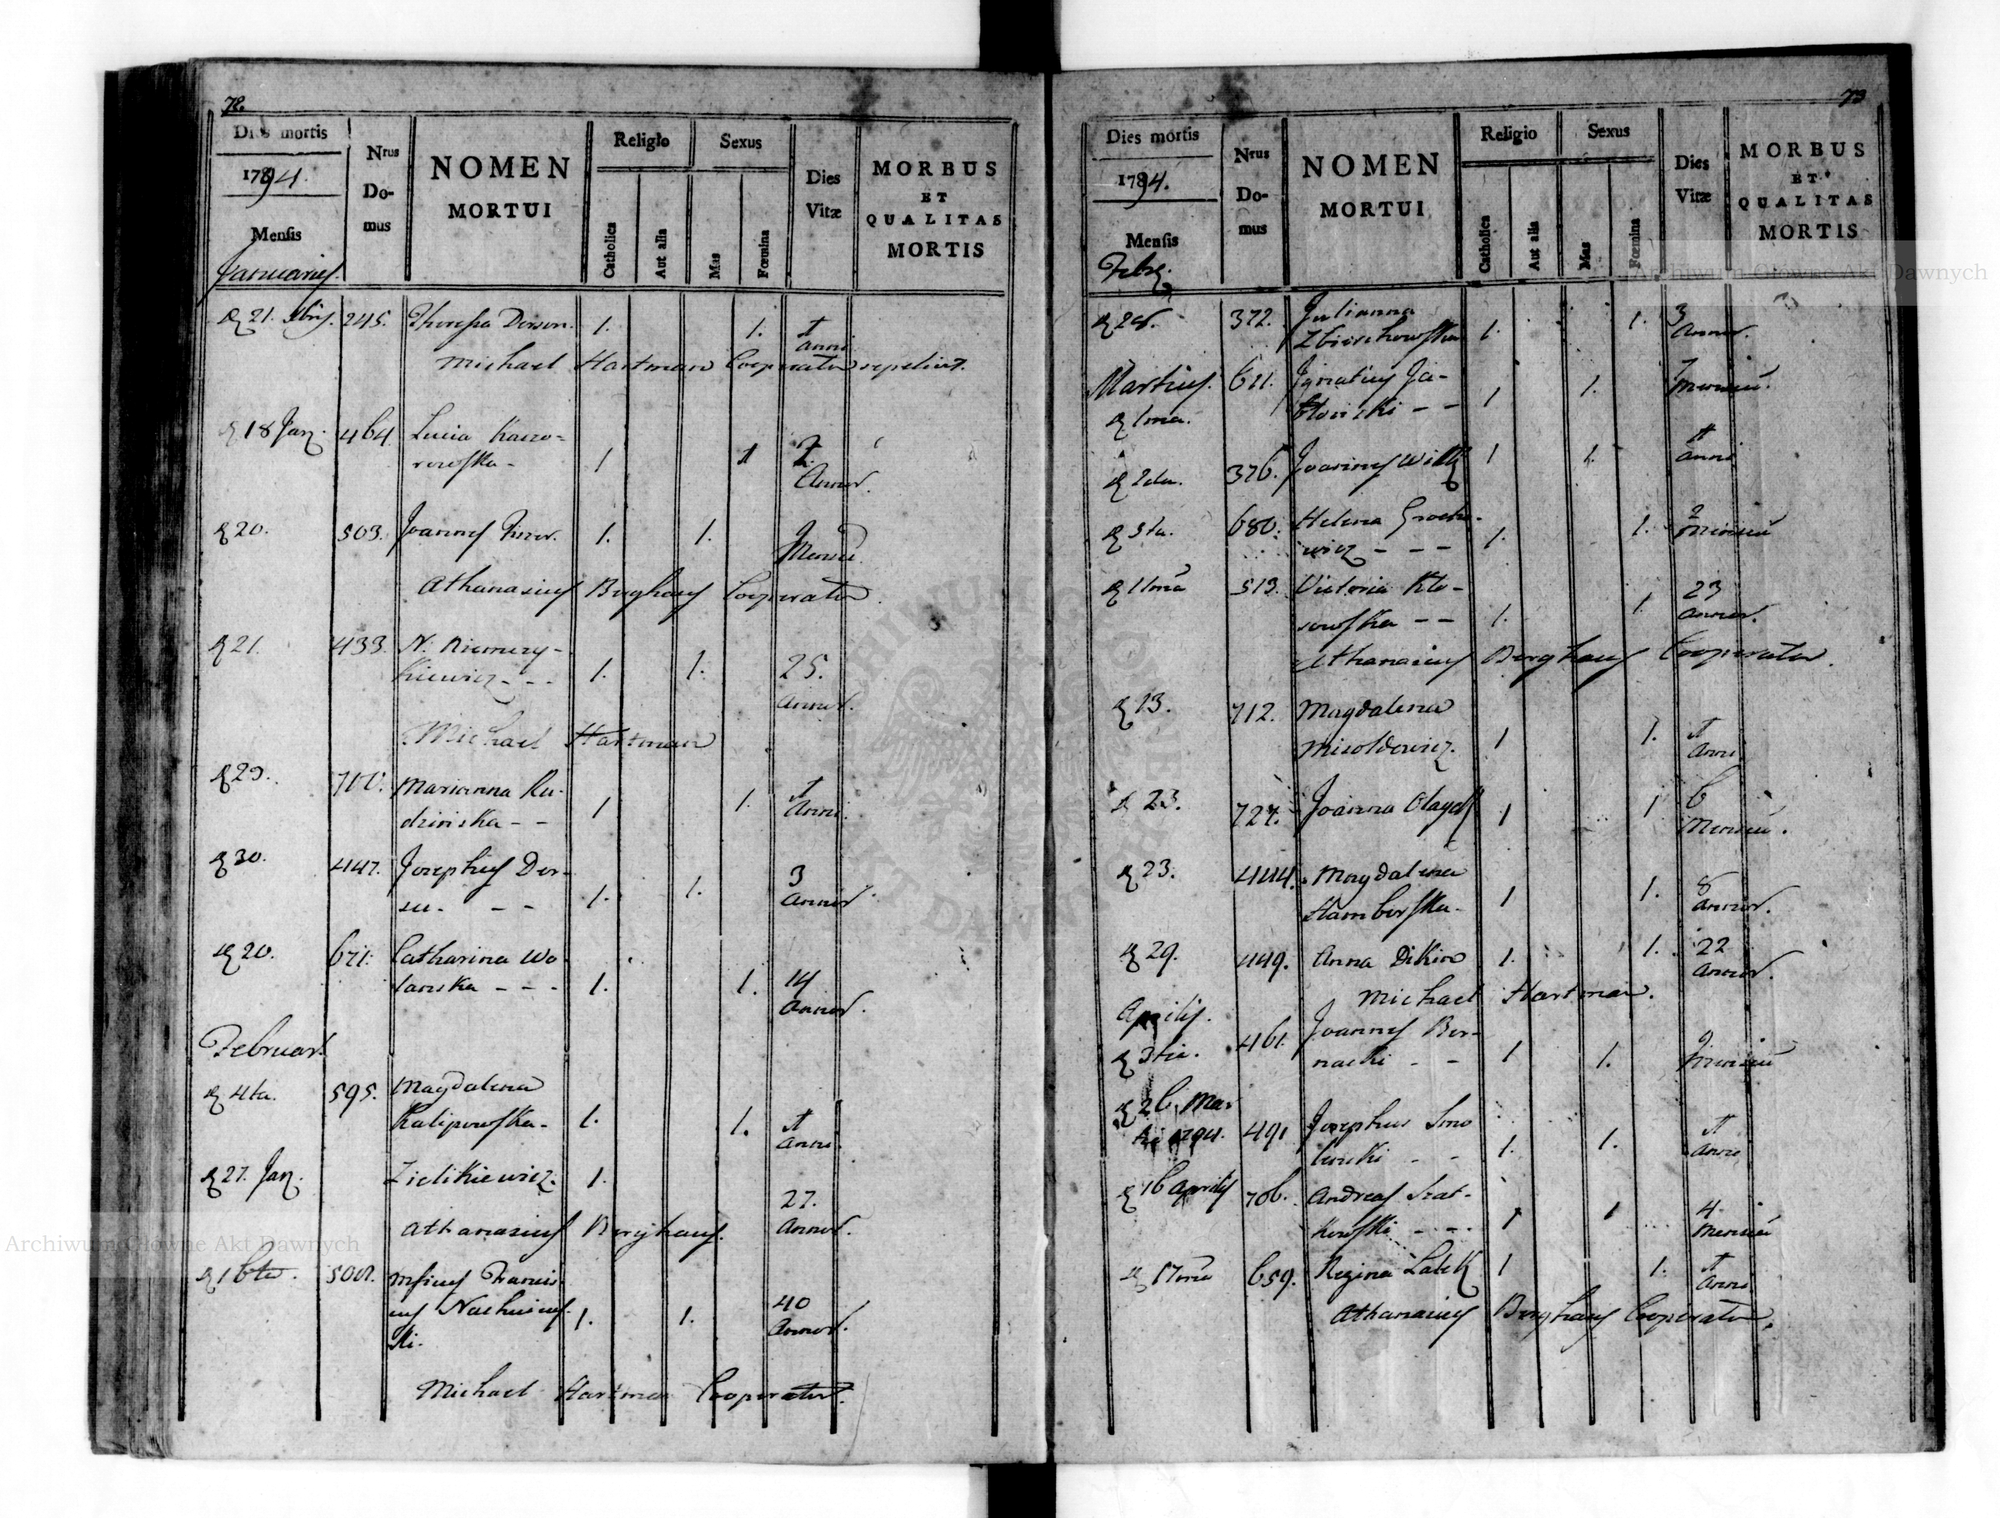 72.
Dies mortis
1794.
Mensis
Januarius.
Nrus
Do-
mus
NOMEN
MORTUI
Religio
Catholica
Aut alia
Sexus
Mas
Fœmina
Dies
Vitæ
MORBUS
ET
QUALITAS
MORTIS
21. 245. 1. 1. 1
anni
Michael Hartman Cooperator sepelivit.
18 Jan. 464. Lucia
1 1
Annor.
20. 503. Joannes 1. 1.
Athanasius Berghaus Cooperator
21. 433. N. Niemczy-
kiewicz - - 1. 1. 25.
Annor.
Michael Hartman
29. 700. Marianna Ru-
dzinska - - 1 1. 1
Anni.
30. 447. Josephus Der-
- - 1. 1. 3
Annor.
20. 671. Catharina Wo-
lanska - - - 1. 1. 14
Annor.
Februar.
4ta. 595. Magdalena
1. 1. 1
Anni.
27. Jan. Zielikiewicz. 1. 27.
Annor.
Athanasius Berghaus.
16ta. 500. 1. 1. 40
Annor.
Michael Hartman Cooperator.
73
Dies mortis
1794.
Mensis
Febr.
Nrus
Do-
mus
NOMEN
MORTUI
Religio
Catholica
Aut alia
Sexus
Mas
Fœmina
Dies
Vitæ
MORBUS
ET
QUALITAS
MORTIS
28. 372. Julianna
1. 1. 3
Annor.
Martius. 621. Ignatius Ja-
błonski - - 1 1. 7
Mensiu.
1ma.
2da. 376. Joannes Wilk 1 1. 1
anni
5ta. 680. Helena
wicz - - - 1. 1. 2
Mensiu
11ma 513. Victoria Klo-
sowska - - 1. 1. 23
Annor.
Athanasius Berghaus Cooperator.
13. 712. Magdalena
Misoldowicz. 1 1. 1
Anni
23. 727. Joanna 1 1 6
Mensiu.
23. 444. Magdalena
Stamberska. 1 1. 8
Annor.
29. 449. Anna Dikin 1. 1. 22
Annor.
Michael Hartman.
Aprilis.
3tia. 461. Joannes Ber-
nacki - - 1 1. 9
Mensiu
26 Mar-
tii 1794. 491 Josephus Smo
lenski - - 1. 1. 1
Anni
16 Aprilis 706. Andreas Szat-
kowski - - - 1 1 4.
Mensiu
17ma 659. Regina Latek 1 1. 1
Anni
Athanasius Berghaus Cooperator.
Archiwum Główne Akt Dawnych
Archiwum Główne Akt Dawnych
ARCHIWUM GŁÓWNE AKT DAWNYCH